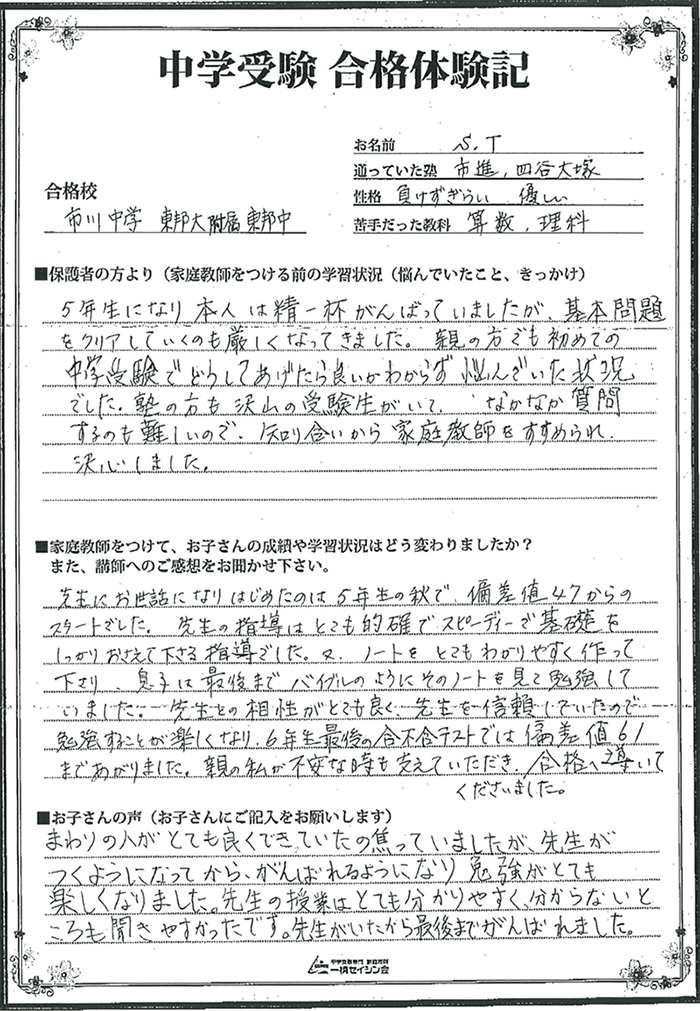 中学受験 合格体験記
お名前 S.T
通っていた塾 市進, 四谷大塚
合格校
性格 負けずぎらい 優しい
市川中学 東邦大附属東邦中
苦手だった教科 算数, 理科
■保護者の方より（家庭教師をつける前の学習状況（悩んでいたこと、きっかけ）
5年生になり本人は精一杯がんばっていましたが、基本問題
をクリアしていくのも厳しくなってきました。親の方でも初めての
中学受験でどうしてあげたら良いかわからず悩んでいた状況
でした。塾の方も沢山の受験生がいて、なかなか質問
するのも難しいので、知り合いから家庭教師をすすめられ、
決心しました。
■家庭教師をつけて、お子さんの成績や学習状況はどう変わりましたか？
また、講師へのご感想をお聞かせ下さい。
先生にお世話になりはじめたのは5年生の秋で、偏差値47からの
スタートでした。先生の指導はとても的確でスピーディーで基礎を
しっかりおさえて下さる指導でした。又、ノートをとてもわかりやすく作って
下さり、息子は最後までバイブルのようにそのノートを見て勉強して
いました。先生との相性がとても良く、先生を信頼していたので
勉強することが楽しくなり、6年生最後の合不合テストでは偏差値61
まであがりました。親の私が不安な時も支えていただき、合格へ導いて
くださいました。
■お子さんの声（お子さんにご記入をお願いします）
まわりの人がとても良くできていたの焦っていましたが、先生が
つくようになってから、がんばれるようになり勉強がとても
楽しくなりました。先生の授業はとても分かりやすく、分からないと
ころも聞きやすかったです。先生がいたから最後までがんばれました。
中学受験専門 家庭教師
一橋セイシン会